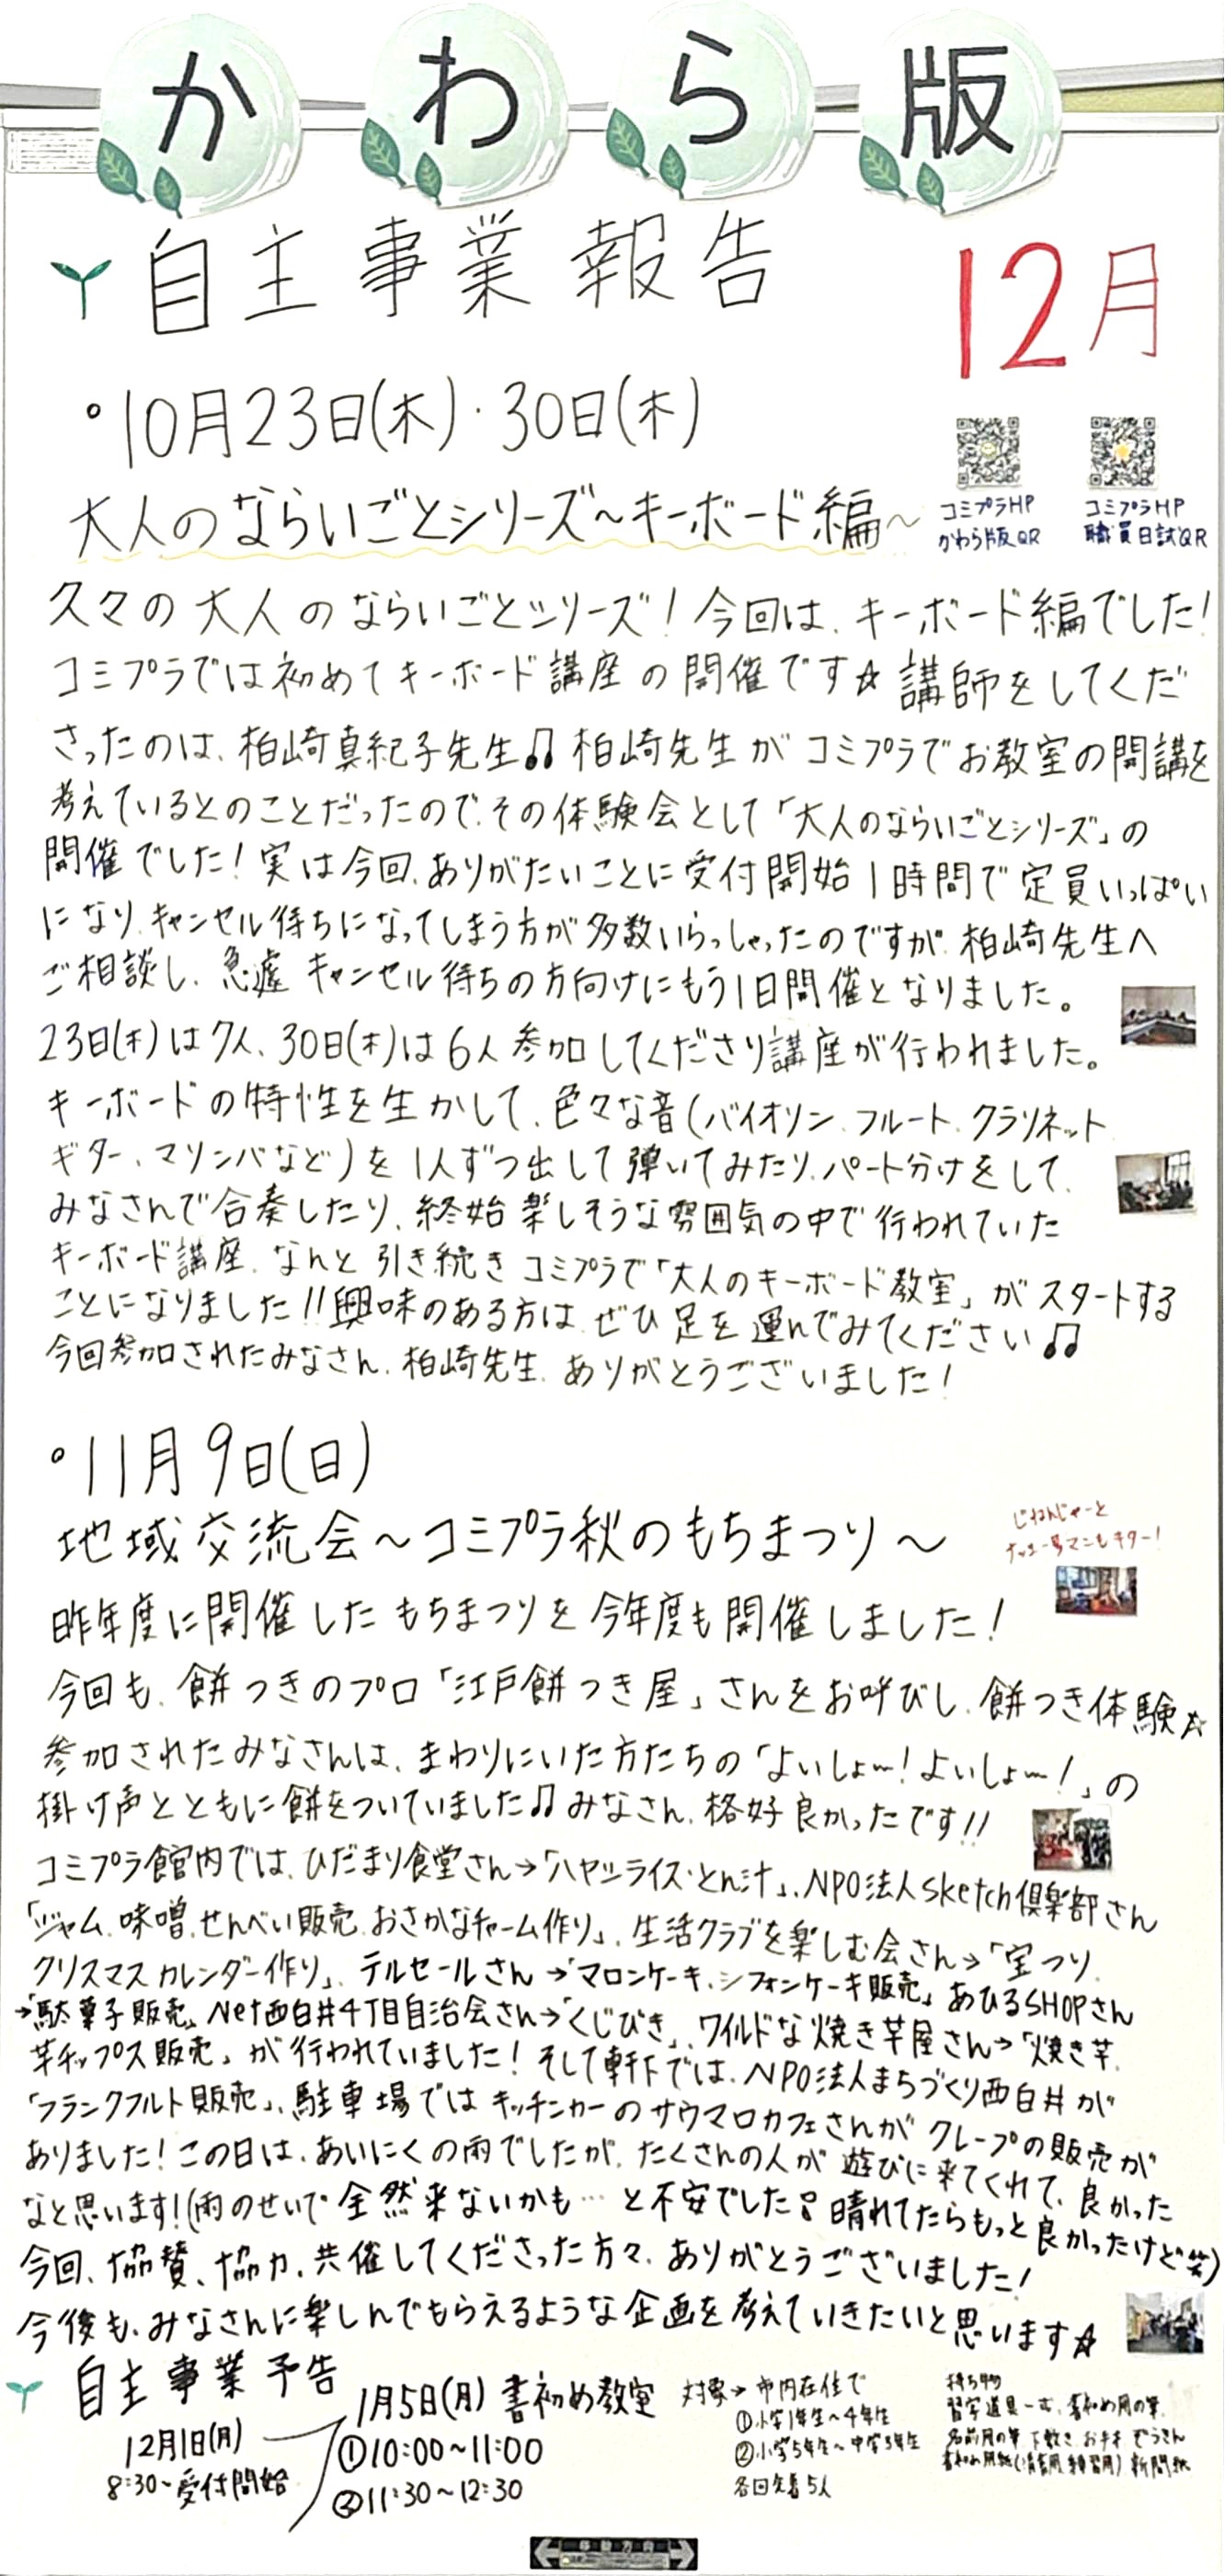 かわら版
自主事業報告
12月
10月23日(木)・30日(木)
コミプラHP
かわら版QR
コミプラHP
職員日誌QR
大人のならいごとシリーズ～キーボード編～
久々の大人のならいごとシリーズ！今回は、キーボード編でした！
コミプラでは初めてキーボード講座の開催です☆講師をしてくだ
さったのは、柏崎真紀子先生♫柏崎先生がコミプラでお教室の開講を
考えているとのことだったので、その体験会として「大人のならいごとシリーズ」の
開催でした！実は今回、ありがたいことに受付開始1時間で定員いっぱい
になり、キャンセル待ちになってしまう方が多数いらっしゃったのですが、柏崎先生へ
ご相談し、急遽キャンセル待ちの方向けにもう1日開催となりました。
23日(木)は7人、30日(木)は6人参加してくださり講座が行われました。
キーボードの特性を生かして、色々な音(バイオリン、フルート、クラリネット
ギター、マリンバなど)を1人ずつ出して弾いてみたり、パート分けをして、
みなさんで合奏したり、終始楽しそうな雰囲気の中で行われていた
キーボード講座、なんと引き続きコミプラで「大人のキーボード教室」がスタートする
ことになりました!!興味のある方は、ぜひ足を運んでみてください♫
今回参加されたみなさん、柏崎先生、ありがとうございました！
11月9日(日)
地域交流会～コミプラ秋のもちまつり～
じねんじゃーと
ナッシー号マンもキター！
昨年度に開催したもちまつりを今年度も開催しました！
今回も、餅つきのプロ「江戸餅つき屋」さんをお呼びし、餅つき体験☆
参加されたみなさんは、まわりにいた方たちの「よいしょ〜！よいしょ〜！」の
掛け声とともに餅をついていました♫みなさん、格好良かったです!!
コミプラ館内では、ひだまり食堂さん→「ハヤシライス・とん汁」、NPO法人sketch倶楽部さん
「ジャム、味噌、せんべい販売、おさかなチャーム作り」、生活クラブを楽しむ会さん→「宝つり、
クリスマスカレンダー作り」、テルセールさん→「マロンケーキ、シフォンケーキ販売」あひるSHOPさん
→「駄菓子販売」、Net西白井4丁目自治会さん→「くじびき」、ワイルドな焼き芋屋さん→「焼き芋、
芋チップス販売」が行われていました！そして軒下では、NPO法人まちづくり西白井が
「フランクフルト販売」、駐車場ではキッチンカーのサウマロカフェさんがクレープの販売が
ありました！この日は、あいにくの雨でしたが、たくさんの人が遊びに来てくれて、良かった
なと思います！(雨のせいで全然来ないかも…と不安でした 晴れてたらもっと良かったけど笑)
今回、協賛、協力、共催してくださった方々、ありがとうございました！
今後も、みなさんに楽しんでもらえるような企画を考えていきたいと思います☆
自主事業予告
12月1日(月)
8:30～受付開始
1月5日(月)書初め教室
①10:00～11:00
②11:30～12:30
対象→市内在住で
①小学1年生～4年生
②小学5年生～中学3年生
各回定員5人
持ち物
習字道具一式、書初め用の筆、
名前用の筆、下敷き、お手本、ぞうきん
書初め用紙(清書用、練習用)新聞紙
移動方向